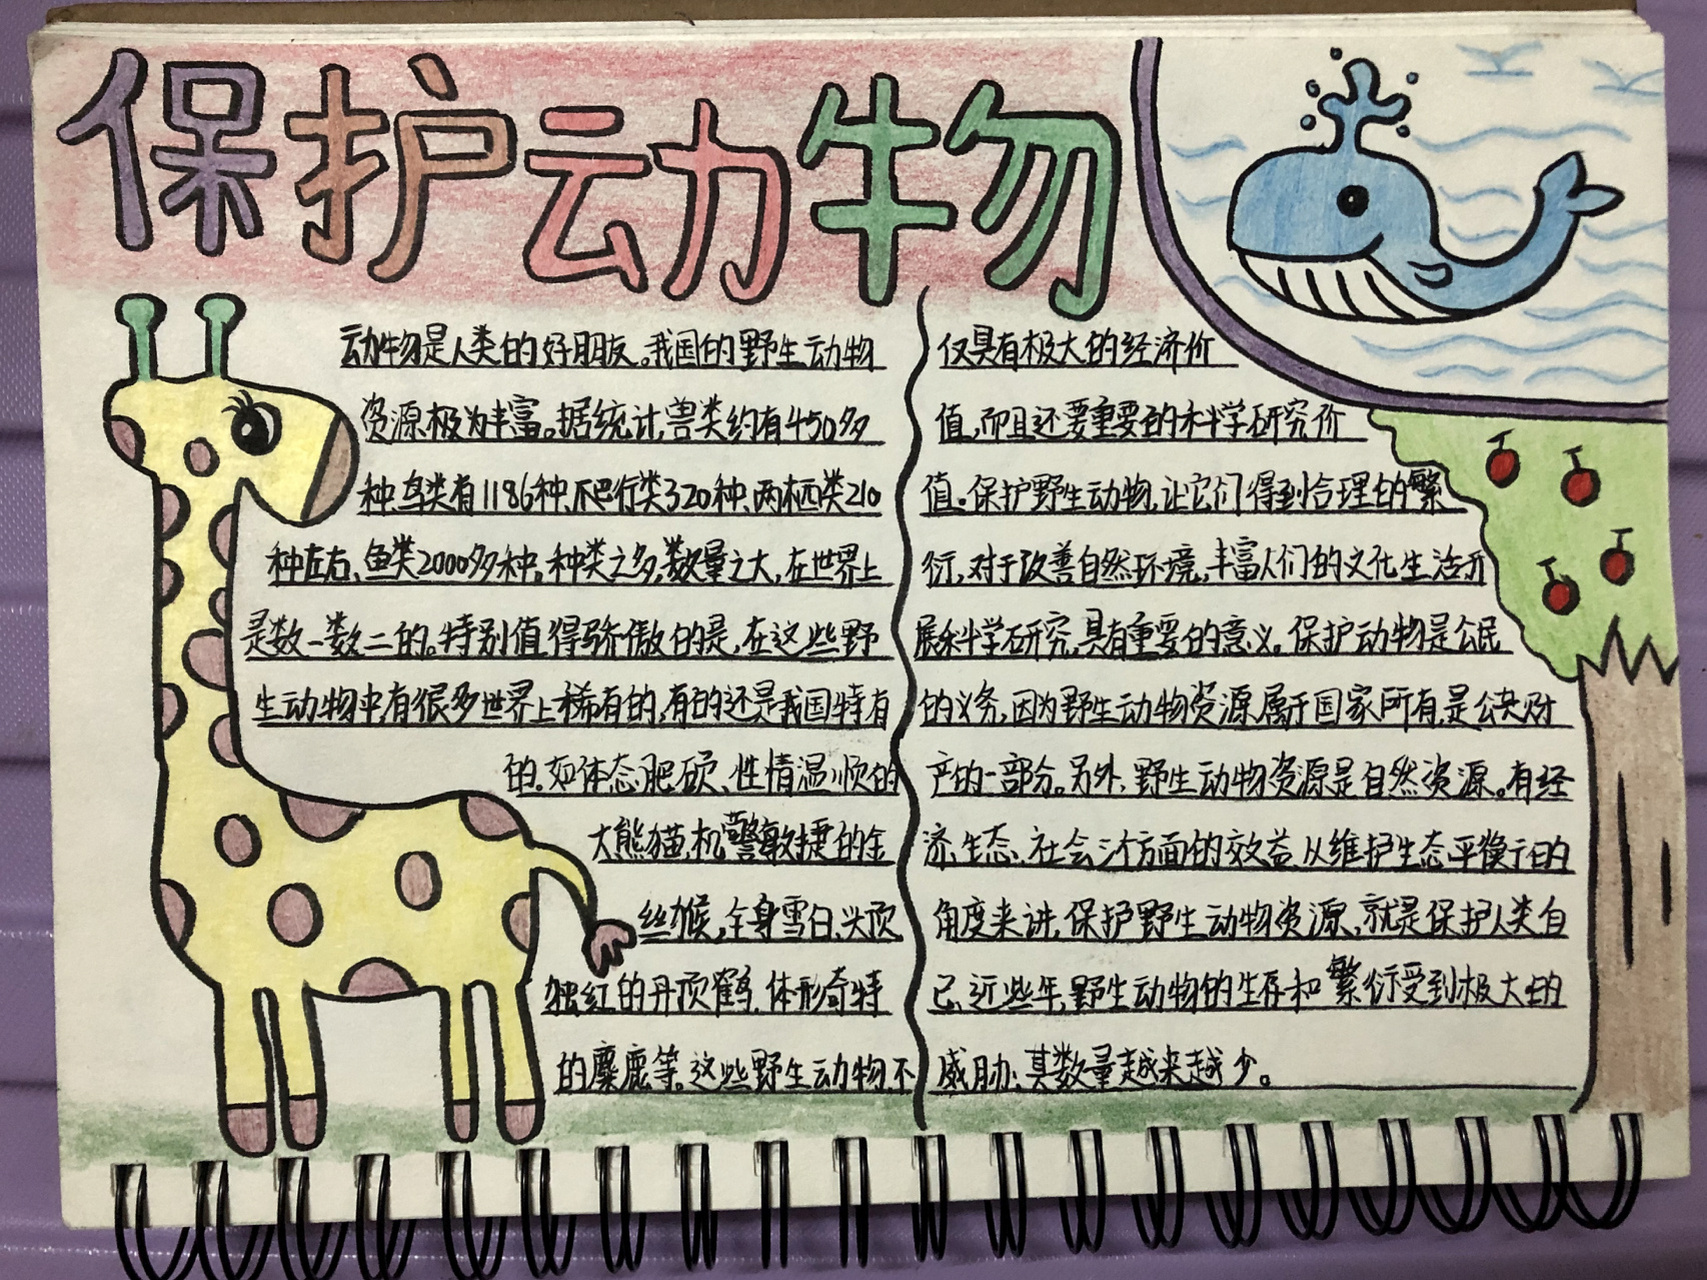 保护动物
动物是人类的好朋友。我国的野生动物
资源极为丰富。据统计,兽类约有450多
种、鸟类有1186种、爬行类320种、两栖类210
种左右、鱼类2000多种。种类之多,数量之大,在世界上
是数一数二的。特别值得骄傲的是,在这些野
生动物中,有很多世界上稀有的,有的还是我国特有
的。如体态肥硕、性情温顺的
大熊猫,机警敏捷的金
丝猴,全身雪白、头顶
独红的丹顶鹤,体形奇特
的麋鹿等。这些野生动物不
仅具有极大的经济价
值,而且还要重要的科学研究价
值。保护野生动物,让它们得到合理的繁
衍,对于改善自然环境,丰富人们的文化生活开
展科学研究,具有重要的意义。保护动物是公民
的义务,因为野生动物资源属于国家所有,是公共财
产的一部分。另外,野生动物资源是自然资源。有经
济、生态、社会三个方面的效益,从维护生态平衡的
角度来讲,保护野生动物资源,就是保护人类自
己,近些年,野生动物的生存和繁衍受到极大的
威胁;其数量越来越少。